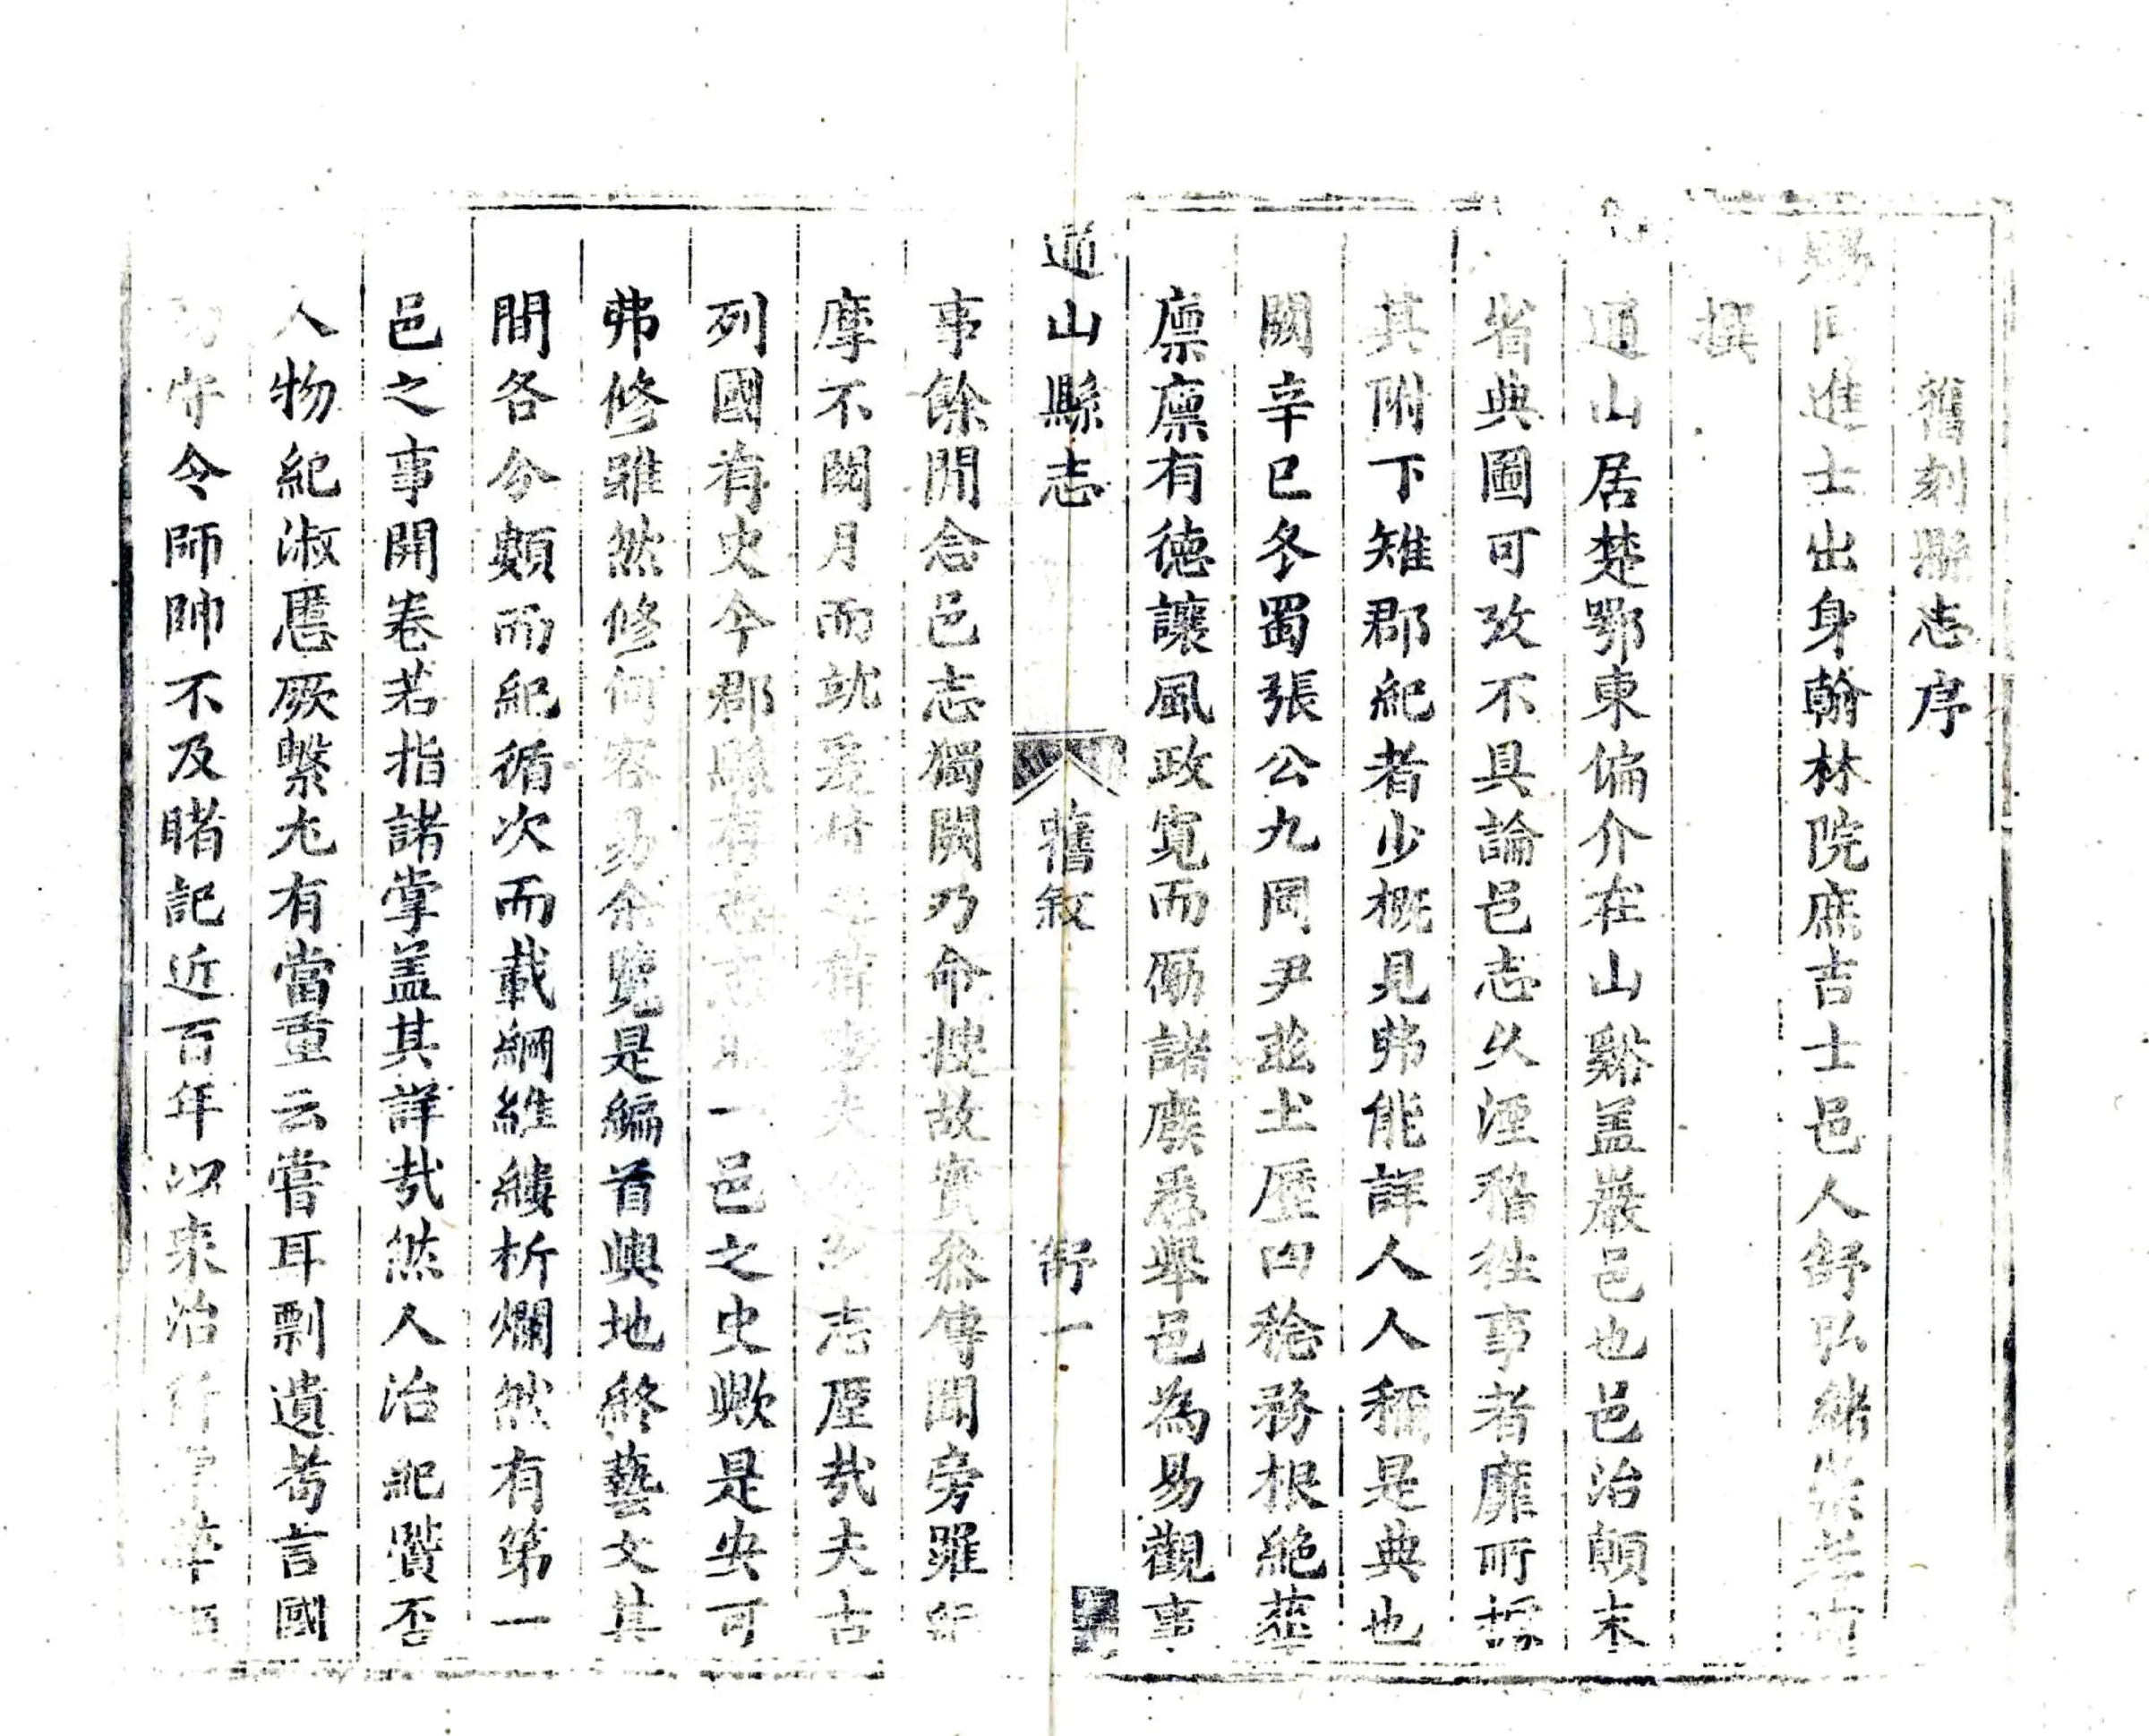 舊刻縣志序
賜同進士出身翰林院庶吉士邑人舒弘緒
撰
通山居楚鄂東偏介在山谿盖巖邑也邑治顛末
省典圖可攷不具論邑志久湮稽徃事者靡所
其附下雉郡紀者少概見弗能詳人人稱是典也
闕辛巳冬蜀張公九岡尹茲土歷四稔務根絶蘖
廩廩有德讓風政寛而勵諸廢悉舉邑為易觀事
通山縣志
舊敘
舒一
事餘閒念邑志獨闕乃命搜故實叅傳聞旁羅
摩不閱月而就 志歷哉夫古
列國有史今郡縣有志 一邑之史歟是安可
弗修雖然修何容易余覽是編首輿地終藝文其
間各分類而紀循次而載綱維縷析爛然有第一
邑之事開卷若指諸掌盖其詳哉然人治紀贒否
人物紀淑慝厥繫尤有當重云嘗耳剽遺耇言國
初守令師帥不及睹記近百年以来治行